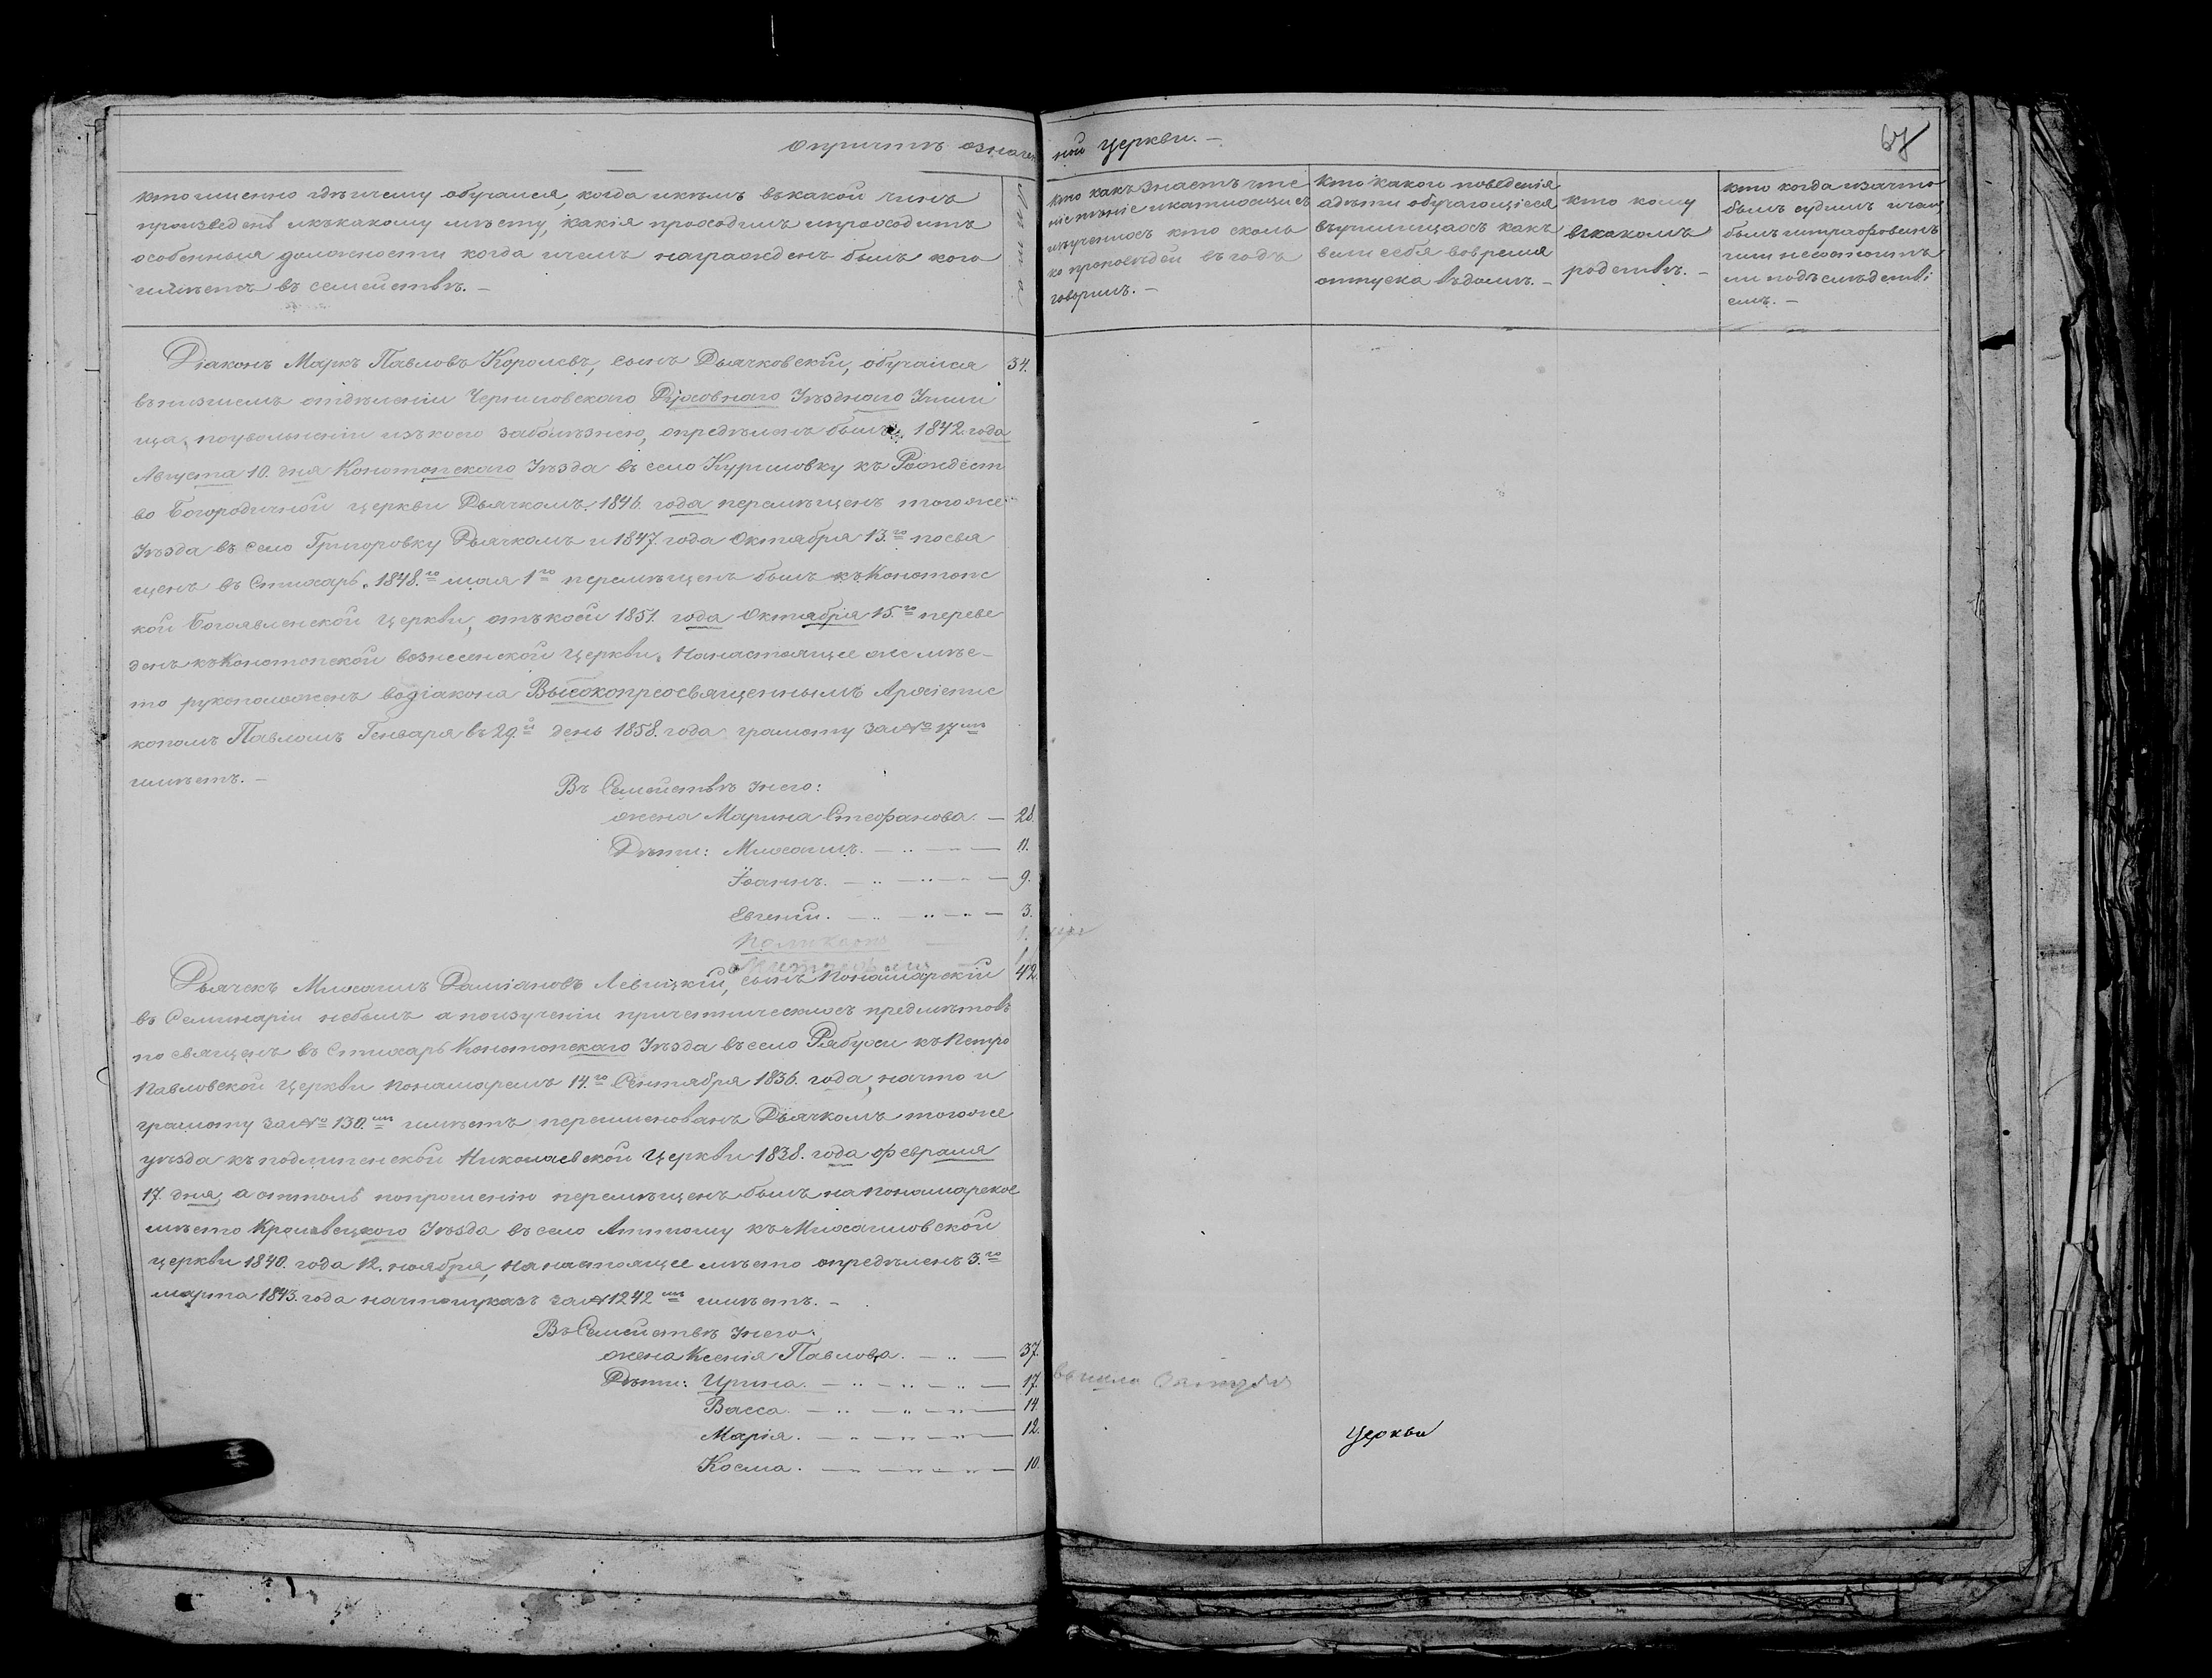 О причтѣ означен
ной Церкви. –
67
Кто именно гдѣ и чему обучался, когда и кѣмъ въ какой чинъ
произведенъ и къ какому мѣсту, какія проходилъ и проходитъ
особенныя должности когда и чемъ награжденъ былъ кого
имѣетъ въ семействѣ. –
Лѣта
Кто какъ знаетъ чте
ніе пѣніе и катихизисъ
ко проповѣдей въ годъ
говорилъ. –
Кто какого поведенія
а дѣти обучающіеся
въ училищахъ какъ
вели себя во время
отпуска въ домъ. –
Кто кому
въ какомъ
родствѣ. –
Кто когда и за что
былъ судимъ и чемъ
былъ штрафованъ
или не состоитъ
ли подъ слѣдстві
емъ. –
Діаконъ Маркъ Павловъ Королевъ, сынъ Дьячковскій, обучался 34.
въ низшемъ отдѣленіи Черниговскаго Духовнаго Уѣзднаго Учили
ща, по увольненіи изъ коего за болѣзнею, опредѣленъ былъ 1842. года
Августа 10. дня Конотопскаго Уѣзда въ село Куриловку къ Рождест
во Богородичной церкви Дьячкомъ. 1846. года перемѣщенъ того же
Уѣзда въ село Григоровку Дьячкомъ и 1847. года Октября 13.го посвя
щенъ въ Стихарь. 1848.го мая 1го перемѣщенъ былъ къ Конотопс
кой Богоявленской Церкви, отъ коей 1851. года Октября 15.го переве
денъ къ Конотопской Вознесенской Церкви. На настоящее же мѣс-
то рукоположенъ во діакона Высокопреосвященнымъ Архіепис
копомъ Павломъ Генваря въ 29.й день 1858. года грамоту за № 17мъ
имѣетъ. –
Въ Семействѣ у него:
жена Марина Стефанова. – 28.
Дѣти: Михаилъ. – 11.
Іоаннъ. – 9.
Евгеній. – 3.
Поликарпъ 1.
Дьячекъ Михаилъ Даміановъ Левицкій, сынъ Понамарскій 42.
въ Семинаріи небылъ а по изученіи причетническихъ предмѣтовъ
посвященъ въ Стихарь Конотопскаго Уѣзда въ село Рябухи къ Петро
Павловской Церкви Понамаремъ 14.го Сентября 1836. года, на что и
грамоту за № 130.мъ имѣетъ переименованъ Дьячкомъ того же
уѣзда къ подлипенской Николаевской Церкви 1838. года февраля
17. дня, а оттоль по прошенію перемѣщенъ былъ на понамарское
мѣсто Кролевецкого Уѣзда въ село Аттюшу къ Михаиловской
церкви 1840. года 12. ноября, на настоящее мѣсто опредѣленъ 3.го
марта 1843. года на что и указъ за № 1242мъ имѣетъ. –
Въ Семействѣ у него:
жена Ксенія Павлова. – 37.
Дѣти: Ирина. – 17.
Васса. – 14.
Марія. – 12.
Косма. – 10.
Церкви